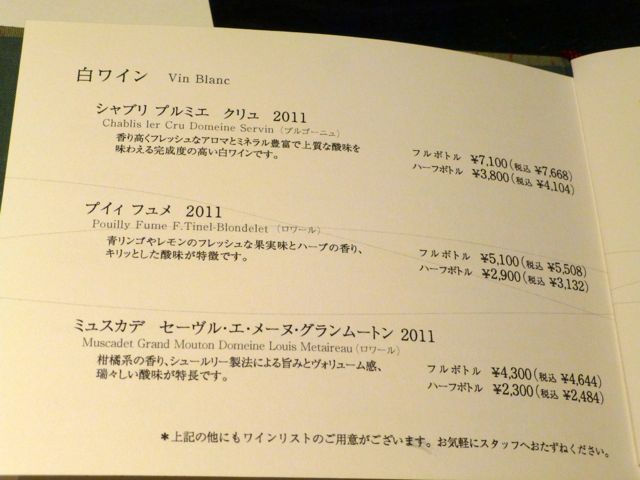 白ワイン Vin Blanc
シャブリ プルミエ クリュ 2011
Chablis 1er Cru Domeine Servin (ブルゴーニュ)
香り高くフレッシュなアロマとミネラル豊富で上質な酸味を
味わえる完成度の高い白ワインです。
フルボトル ¥7,100(税込 ¥7,668)
ハーフボトル ¥3,800(税込 ¥4,104)
プイィ フュメ 2011
Pouilly Fume F.Tinel-Blondelet (ロワール)
青リンゴやレモンのフレッシュな果実味とハーブの香り、
キリッとした酸味が特徴です。
フルボトル ¥5,100(税込 ¥5,508)
ハーフボトル ¥2,900(税込 ¥3,132)
ミュスカデ セーヴル・エ・メーヌ・グランムートン 2011
Muscadet Grand Mouton Domeine Louis Metaireau (ロワール)
柑橘系の香り、シュールリー製法による旨みとヴォリューム感、
瑞々しい酸味が特長です。
フルボトル ¥4,300(税込 ¥4,644)
ハーフボトル ¥2,300(税込 ¥2,484)
*上記の他にもワインリストのご用意がございます。お気軽にスタッフへおたずねください。